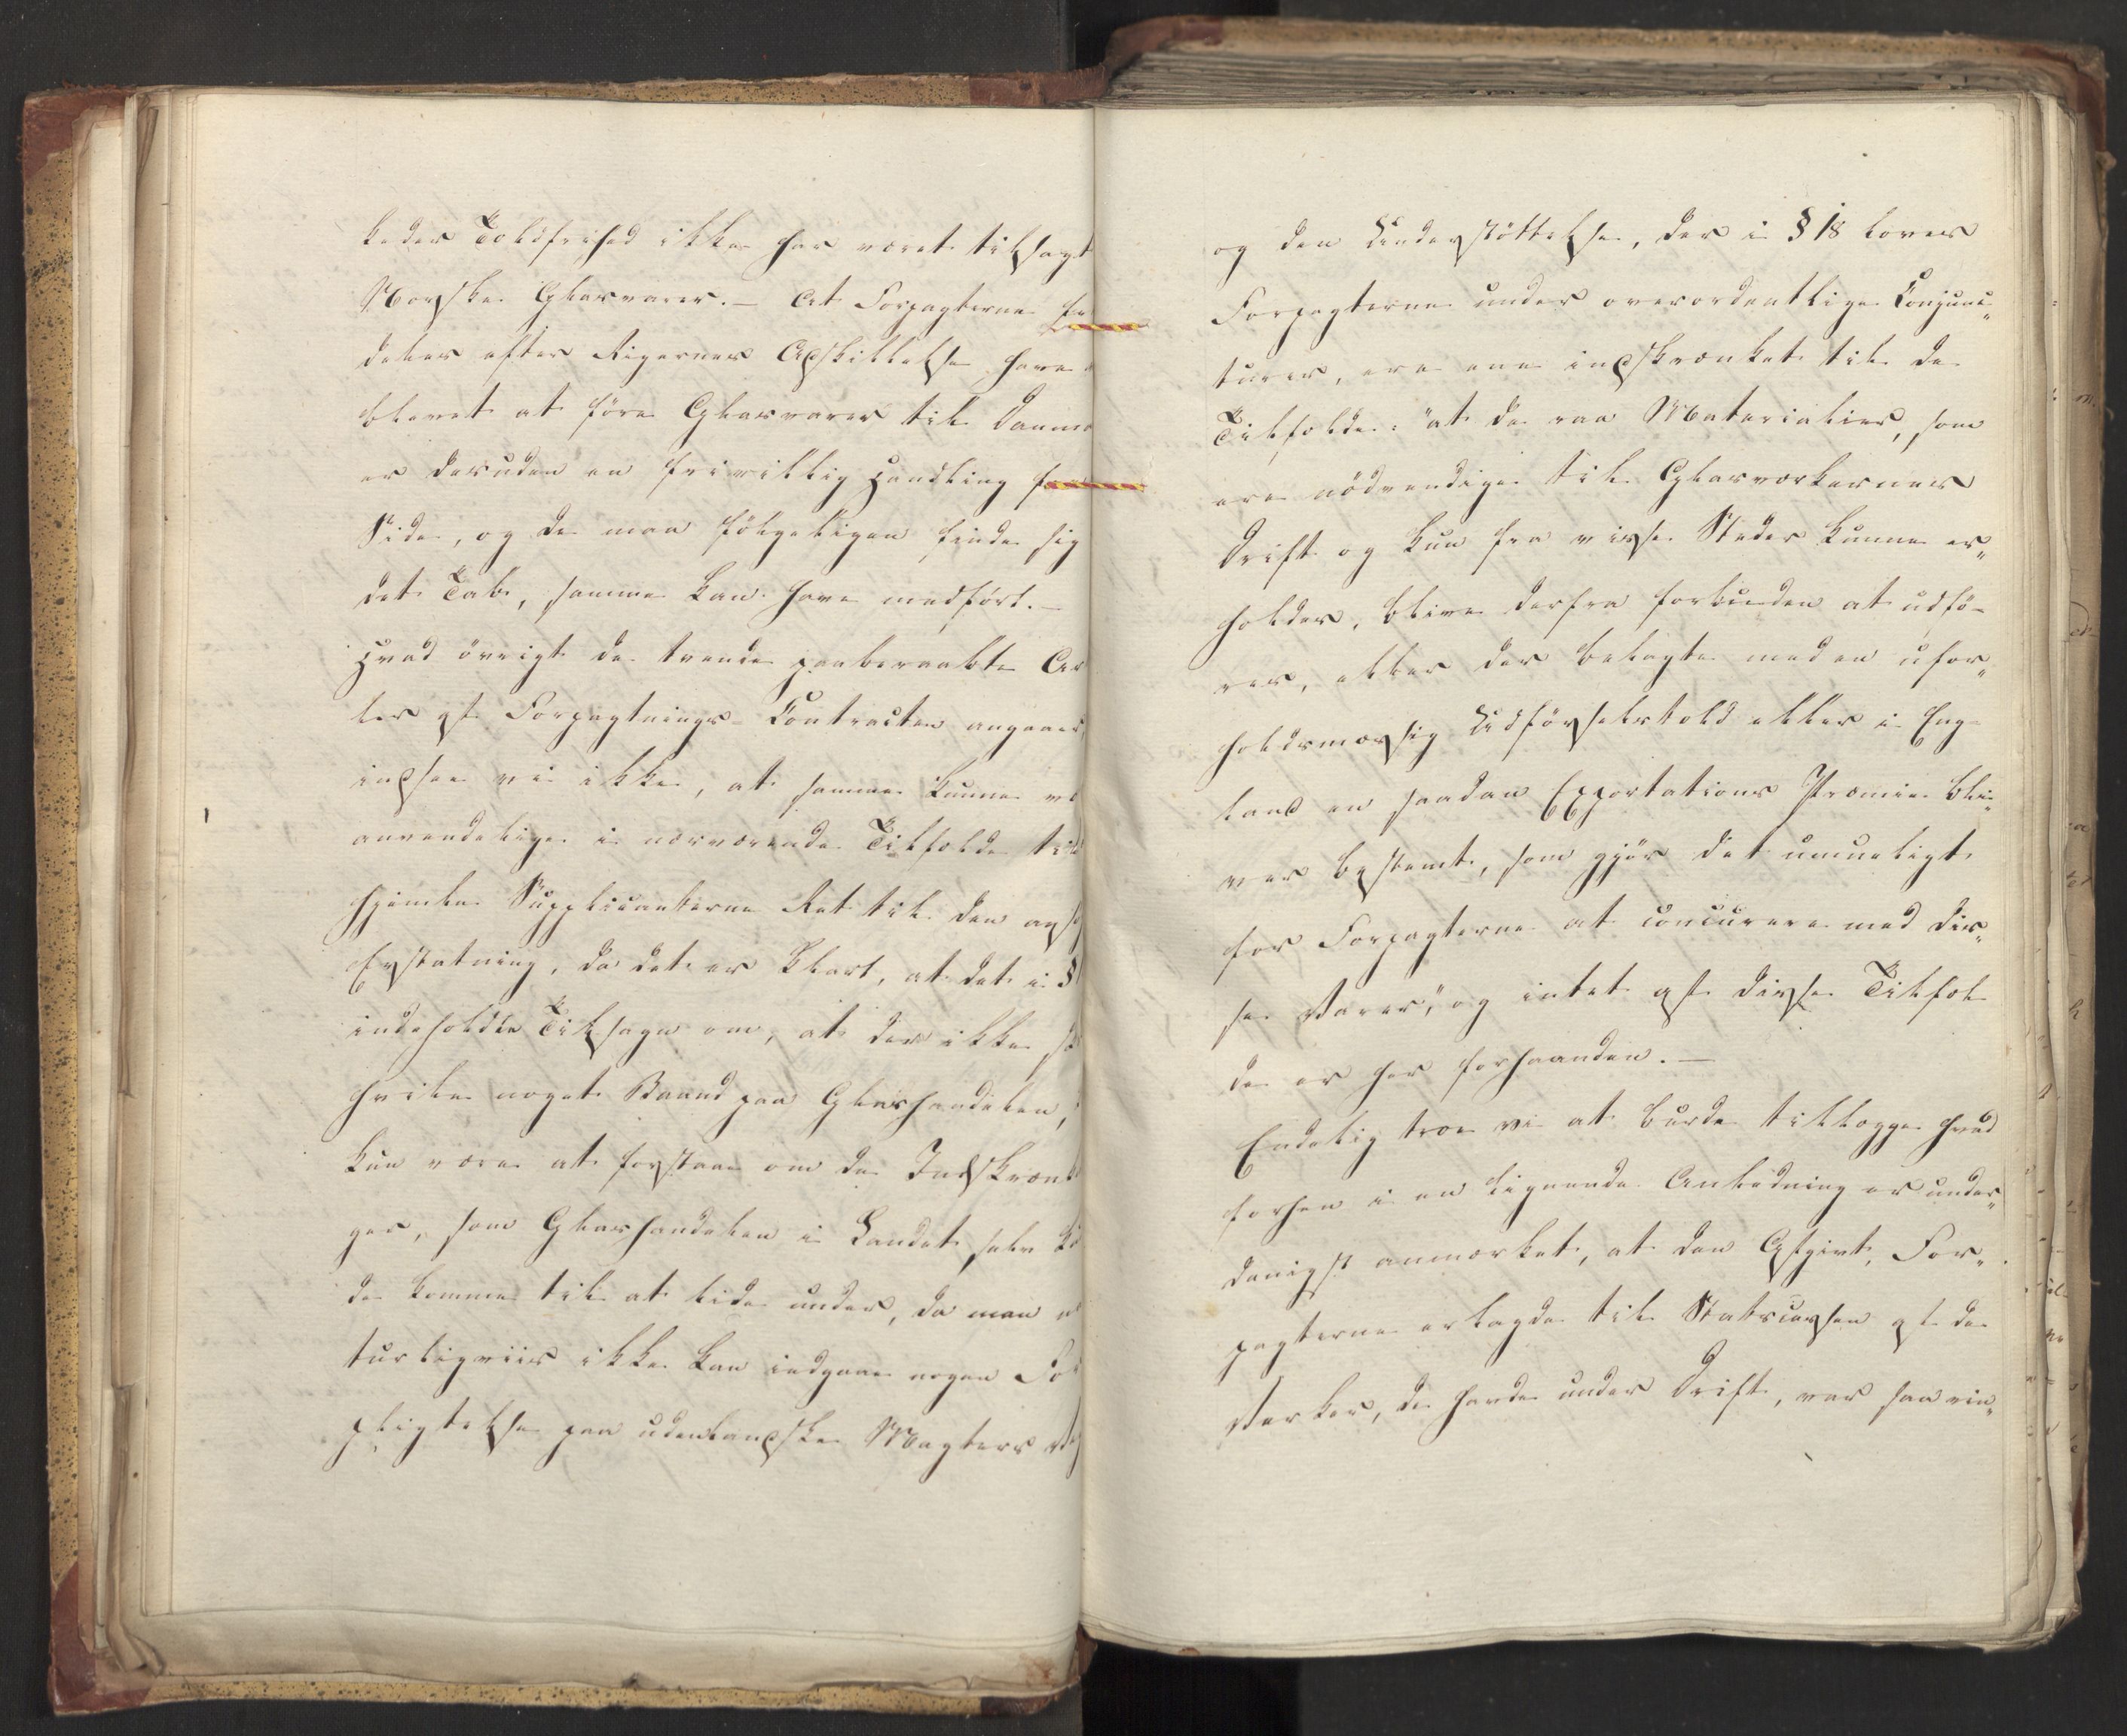 keder Toldfrihed ikke har været tilsagt
Norske Glasvarer. – At Forpagterne fr
deles efter Rigernes Adskillelse have
blevet at före Glasvarer til Danma
er desuden en frivillig Handling fra
Side, og de maa fölgeligen finde sig
det Tab, samme kan have medfört. –
Hvad övrigt de tvende paaberaabte Ar
ler af Forpagtnings-Contracten angaaer
indsee vi ikke, at samme kunne væ
anvendelige i nærværende Tilfælde til
hjemle Supplicanterne Ret til den ansö
Erstatning, da det er klart, at det i §
indeholdte Tilsagn om, at der ikke sk
hvile noget Baand paa Glashandelen,
kun være at forstaae om de Indskrænk
ger, som Glashandelen i Landet selv ku
de komme til at lide under, da man na
turligviis ikke kan indgaae nogen For
pligtelse paa udenlandske Magters Ve
og den Understöttelse, der i § 18 loves
Forpagterne under overordentlige Conjunc„
turer, ere ene indskrænket til de
Tilfælde: "at de raa Materialier, som
ere nödvendige til Glasværkernes
Drift og kun fra visse Steder kunne er„
holdes, blive derfra forbuden at udfö-
res, eller der belagte med en ufor„
holdsmæssig Udförselstold eller i Eng-
land en saadan Exportations Præmie bli„
ver bestemt, som gjör det umueligt
for Forpagterne at concurere med dis„
se Varer", og intet af disse Tilfæl
de er her forhaanden. –
Endelig troe vi at burde tillægge hvad
forhen i en lignende Anledning er under„
danigst anmærket, at den Afgivt, For„
pagterne erlagde til Statscassen af de
Værker, de havde under Drift, var saa rin„